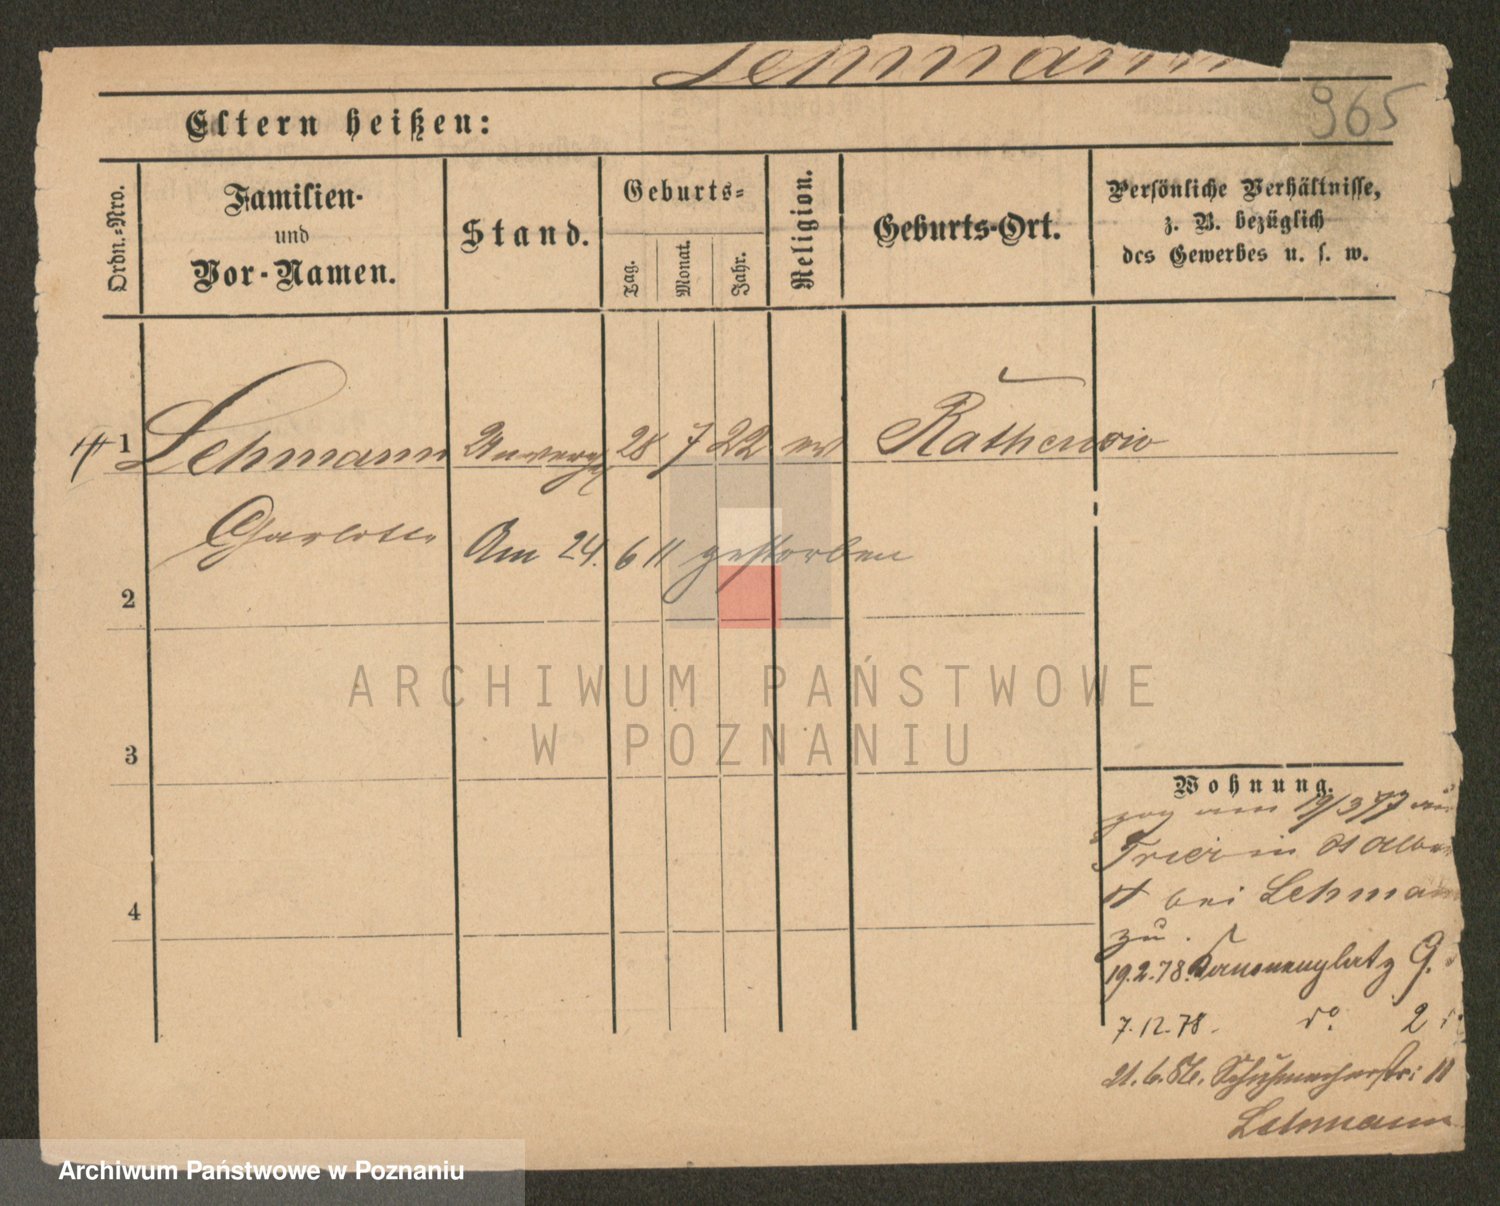 Lehmann
965
Eltern heißen:
Ordn.-Nro.
Familien-
und
Vor-Namen.
Stand.
Geburts-
Tag.
Monat.
Jahr.
Religion.
Geburts-Ort.
Persönliche Verhältnisse,
z. B. bezüglich
des Gewerbes u. s. w.
1 Lehmann 28 7 22 ev Rathenow
Charlotte Am 24. 6 11 gestorben
2
3
4
Wohnung.
zog am 19/3 77 aus
Trier in
bei Lehmann
zu.
19.2.78. Kanonenplatz 9.
7.12.78. do. 2
21.6.86. Schuhmacherstr: 11
Lehmann
ARCHIWUM PAŃSTWOWE
W POZNANIU
Archiwum Państwowe w Poznaniu